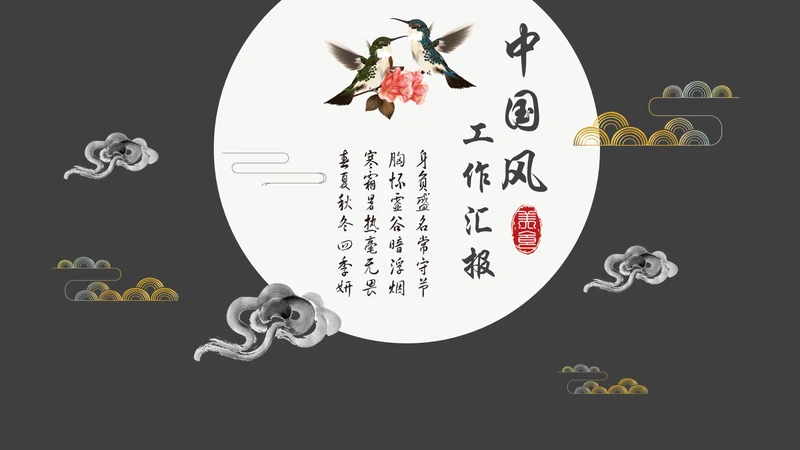 中国风
工作汇报
美食
身负盛名常守节
胸怀灵谷暗浮烟
寒霜暑热毫无畏
春夏秋冬四季妍